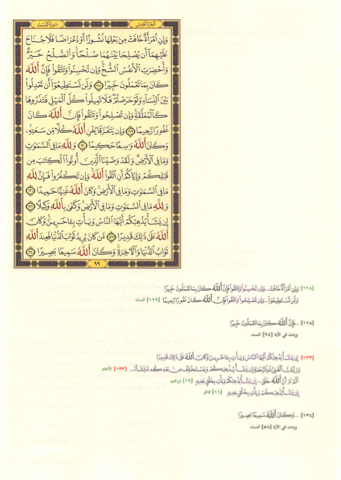 الجزء الخامس سورة النساء
وَإِنِ ٱمْرَأَةٌ خَافَتْ مِنۢ بَعْلِهَا نُشُوزًا أَوْ إِعْرَاضًا فَلَا جُنَاحَ
عَلَيْهِمَآ أَن يُصْلِحَا بَيْنَهُمَا صُلْحًا وَٱلصُّلْحُ خَيْرٌ
وَأُحْضِرَتِ ٱلْأَنفُسُ ٱلشُّحَّ وَإِن تُحْسِنُوا۟ وَتَتَّقُوا۟ فَإِنَّ ٱللَّهَ
كَانَ بِمَا تَعْمَلُونَ خَبِيرًا ١٢٨ وَلَن تَسْتَطِيعُوٓا۟ أَن تَعْدِلُوا۟
بَيْنَ ٱلنِّسَآءِ وَلَوْ حَرَصْتُمْ فَلَا تَمِيلُوا۟ كُلَّ ٱلْمَيْلِ فَتَذَرُوهَا
كَٱلْمُعَلَّقَةِ وَإِن تُصْلِحُوا۟ وَتَتَّقُوا۟ فَإِنَّ ٱللَّهَ كَانَ
غَفُورًا رَّحِيمًا ١٢٩ وَإِن يَتَفَرَّقَا يُغْنِ ٱللَّهُ كُلًّا مِّن سَعَتِهِۦ
وَكَانَ ٱللَّهُ وَٰسِعًا حَكِيمًا ١٣٠ وَلِلَّهِ مَا فِى ٱلسَّمَٰوَٰتِ
وَمَا فِى ٱلْأَرْضِ وَلَقَدْ وَصَّيْنَا ٱلَّذِينَ أُوتُوا۟ ٱلْكِتَٰبَ مِن
قَبْلِكُمْ وَإِيَّاكُمْ أَنِ ٱتَّقُوا۟ ٱللَّهَ وَإِن تَكْفُرُوا۟ فَإِنَّ لِلَّهِ
مَا فِى ٱلسَّمَٰوَٰتِ وَمَا فِى ٱلْأَرْضِ وَكَانَ ٱللَّهُ غَنِيًّا حَمِيدًا ١٣١
وَلِلَّهِ مَا فِى ٱلسَّمَٰوَٰتِ وَمَا فِى ٱلْأَرْضِ وَكَفَىٰ بِٱللَّهِ وَكِيلًا ١٣٢
إِن يَشَأْ يُذْهِبْكُمْ أَيُّهَا ٱلنَّاسُ وَيَأْتِ بِـَٔاخَرِينَ وَكَانَ
ٱللَّهُ عَلَىٰ ذَٰلِكَ قَدِيرًا ١٣٣ مَّن كَانَ يُرِيدُ ثَوَابَ ٱلدُّنْيَا فَعِندَ ٱللَّهِ
ثَوَابُ ٱلدُّنْيَا وَٱلْـَٔاخِرَةِ وَكَانَ ٱللَّهُ سَمِيعًۢا بَصِيرًا ١٣٤
٩٩
[١٢٨] وَإِنِ ٱمْرَأَةٌ خَافَتْ... وَإِن تُحْسِنُوا۟ وَتَتَّقُوا۟ فَإِنَّ ٱللَّهَ كَانَ بِمَا تَعْمَلُونَ خَبِيرًا
وَلَن تَسْتَطِيعُوٓا۟... وَإِن تُصْلِحُوا۟ وَتَتَّقُوا۟ فَإِنَّ ٱللَّهَ كَانَ غَفُورًا رَّحِيمًا [١٢٩] النساء
[١٢٨] ...فَإِنَّ ٱللَّهَ كَانَ بِمَا تَعْمَلُونَ خَبِيرًا
وردت في الآية [٩٤] النساء
[١٣٣] إِن يَشَأْ يُذْهِبْكُمْ أَيُّهَا ٱلنَّاسُ وَيَأْتِ بِـَٔاخَرِينَ وَكَانَ ٱللَّهُ عَلَىٰ ذَٰلِكَ قَدِيرًا
وَرَبُّكَ ٱلْغَنِىُّ ذُو ٱلرَّحْمَةِ إِن يَشَأْ يُذْهِبْكُمْ وَيَسْتَخْلِفْ مِنۢ بَعْدِكُم مَّا يَشَآءُ... [١٣٣] الأنعام
أَلَمْ تَرَ أَنَّ ٱللَّهَ خَلَقَ... إِن يَشَأْ يُذْهِبْكُمْ وَيَأْتِ بِخَلْقٍ جَدِيدٍ [١٩] إبراهيم
إِن يَشَأْ يُذْهِبْكُمْ وَيَأْتِ بِخَلْقٍ جَدِيدٍ [١٦] فاطر
[١٣٤] ...وَكَانَ ٱللَّهُ سَمِيعًۢا بَصِيرًا
وردت في الآية [٥٨] النساء